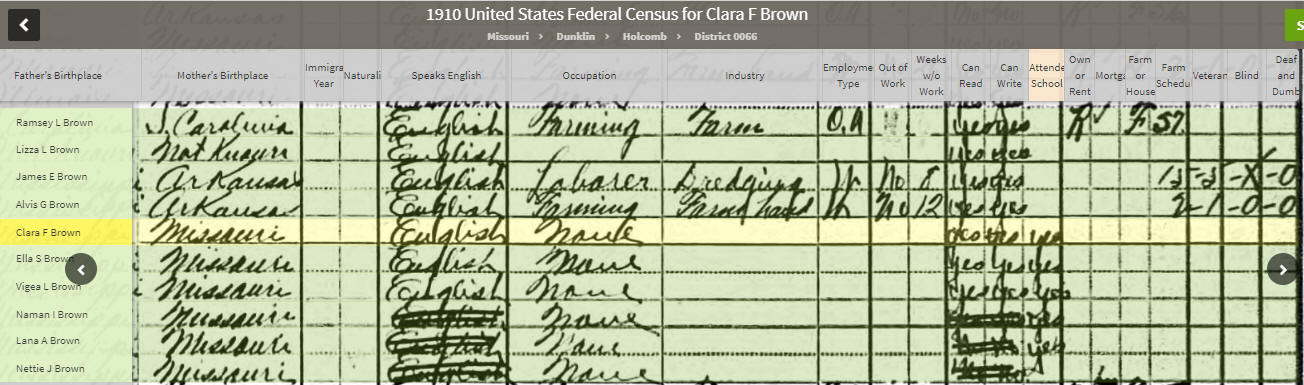 1910 United States Federal Census for Clara F Brown
Missouri > Dunklin > Holcomb > District 0066
S
Father's Birthplace Mother's Birthplace Immigra Year Naturali Speaks English Occupation Industry Employme Type Out of Work Weeks w/o Work Can Read Can Write Attende School Own or Rent Mortga Farm or House Farm Schedu Veteran Blind Deaf and Dumb
Ramsey L Brown S. Carolinia English Farming Farm O.A yes yes R F 57
Lizza L Brown Not Known English yes yes
James E Brown Arkansas English Laborer Dredging W No 8 yes yes
Alvis G Brown Arkansas English Farming Farm hand W No 12 yes yes
Clara F Brown Missouri English None yes yes yes
Ella S Brown Missouri English None yes yes yes
Vigea L Brown Missouri English None yes yes yes
Naman I Brown Missouri English None yes
Lana A Brown Missouri English None yes
Nettie J Brown Missouri English None